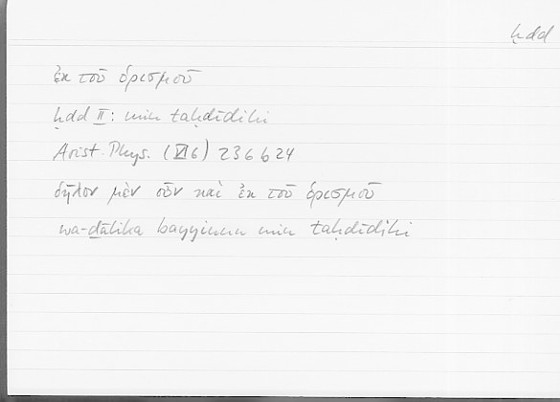 ḥdd
ἐκ τοῦ ὁρισμοῦ
ḥdd II: min taḥdīdihi
Arist. Phys. (VI 6) 236b24
δῆλον μὲν οὖν καὶ ἐκ τοῦ ὁρισμοῦ
wa-ḏālika bayyinun min taḥdīdihi